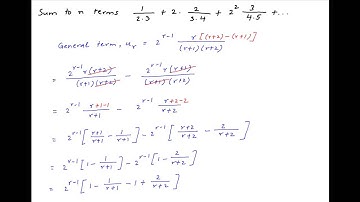 Sum to n terms 1/(2·3) + 2· 2/(3·4) + 2² 3/(4·5) + ...
General term, u_r = 2^(r-1) r[(r+2)-(r+1)]/((r+1)(r+2))
= 2^(r-1) r(r+2)/((r+1)(r+2)) - 2^(r-1) r(r+1)/((r+1)(r+2))
= 2^(r-1) (r+1-1)/(r+1) - 2^(r-1) (r+2-2)/(r+2)
= 2^(r-1) [(r+1)/(r+1) - 1/(r+1)] - 2^(r-1) [(r+2)/(r+2) - 2/(r+2)]
= 2^(r-1) [1 - 1/(r+1)] - 2^(r-1) [1 - 2/(r+2)]
= 2^(r-1) [1 - 1/(r+1) - 1 + 2/(r+2)]